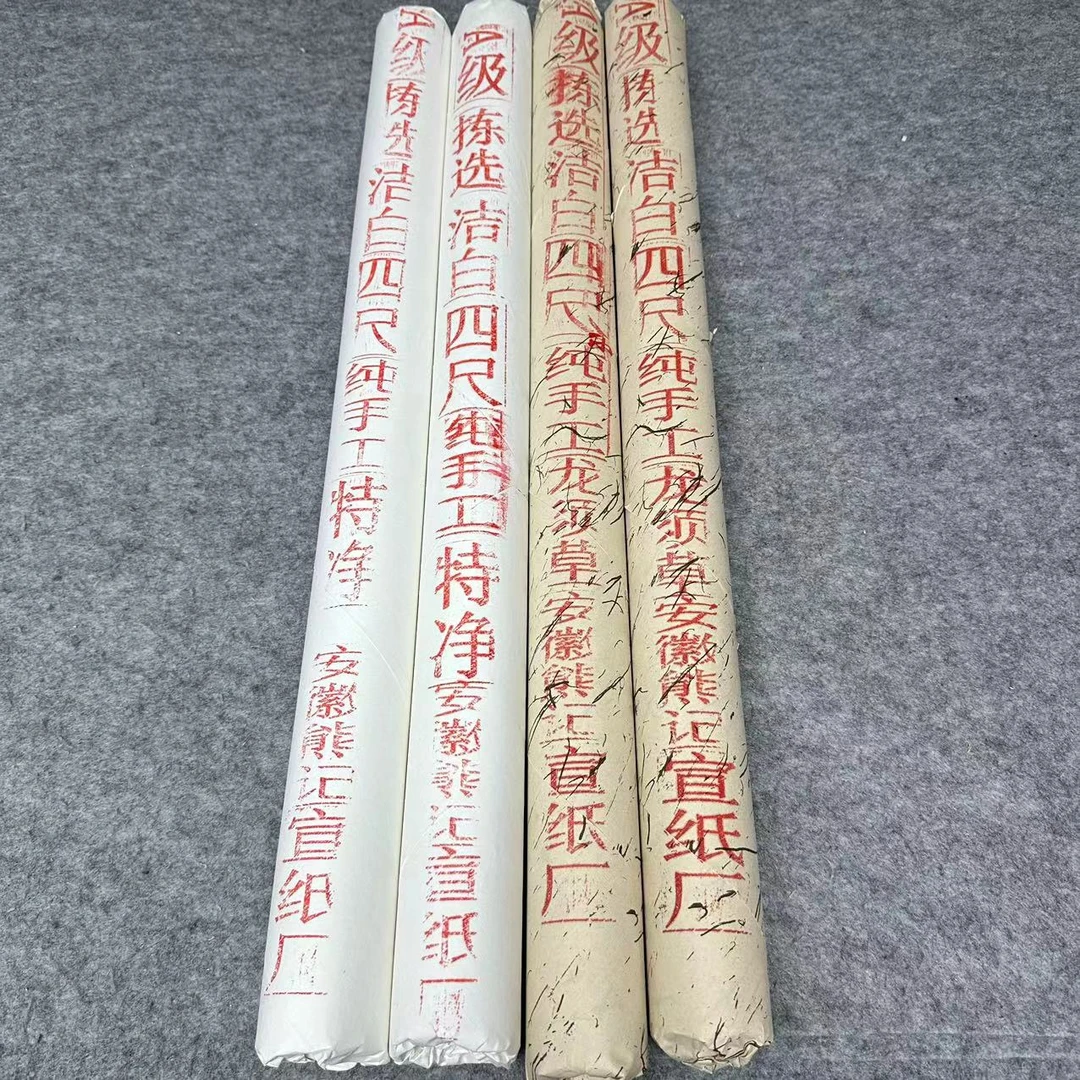 A级拣选洁白四尺纯手工特净安徽熊记宣纸厂
A级拣选洁白四尺纯手工特净安徽熊记宣纸厂
A级拣选洁白四尺纯手工龙须草安徽熊记宣纸厂
A级拣选洁白四尺纯手工龙须草安徽熊记宣纸厂